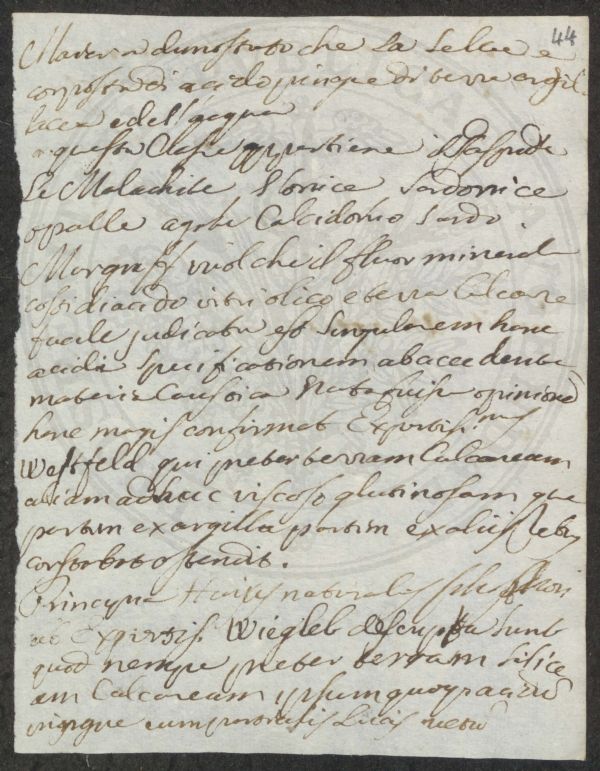 44
Mayer a dimostrato che La Selce e
composta di acido pingue di terra argil
lacea e dell'acqua
a questa Classe appartiene il Diaspro
Le Malachite L'onice Sardonice
opalle agata Calcidonio Sardo
Margraff vuol che il fluor minerale
cossidiacido vitriolico e terra Calcarea
facile judicatu est singularem hanc
acidi specificationem ab accedente
materie Caustica Nata fuisse opinionem
hanc magis confirmat Expertiss.mus
Westfeld qui preter terram Calcaream
aliam adhuc viscoso glutinosam que
partim ex argilla partim ex aliis rebus
constabat ostendit.
Principia Hujus naturalis
ab Expertiss. Wiegleb descripta sunt
quod nempe preter terram silice
am Calcaream ipsum quoq acidum
pingue cum